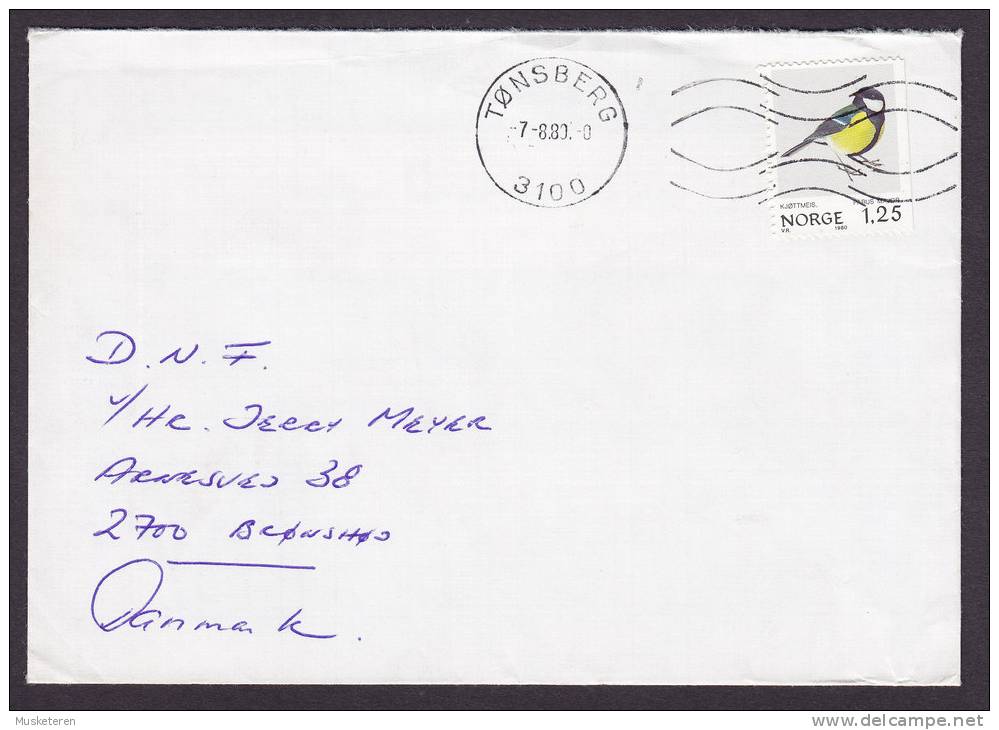 TØNSBERG
-7-8.80.-0
3100
KJØTTMEIS. PARUS MAJOR
NORGE 1,25
V.R. 1980
D. N. F.
V/HR. JERRY MEYER
ARNESVEJ 38
2700 BRØNSHØJ
Danmark.
Musketeren
delcampe.net